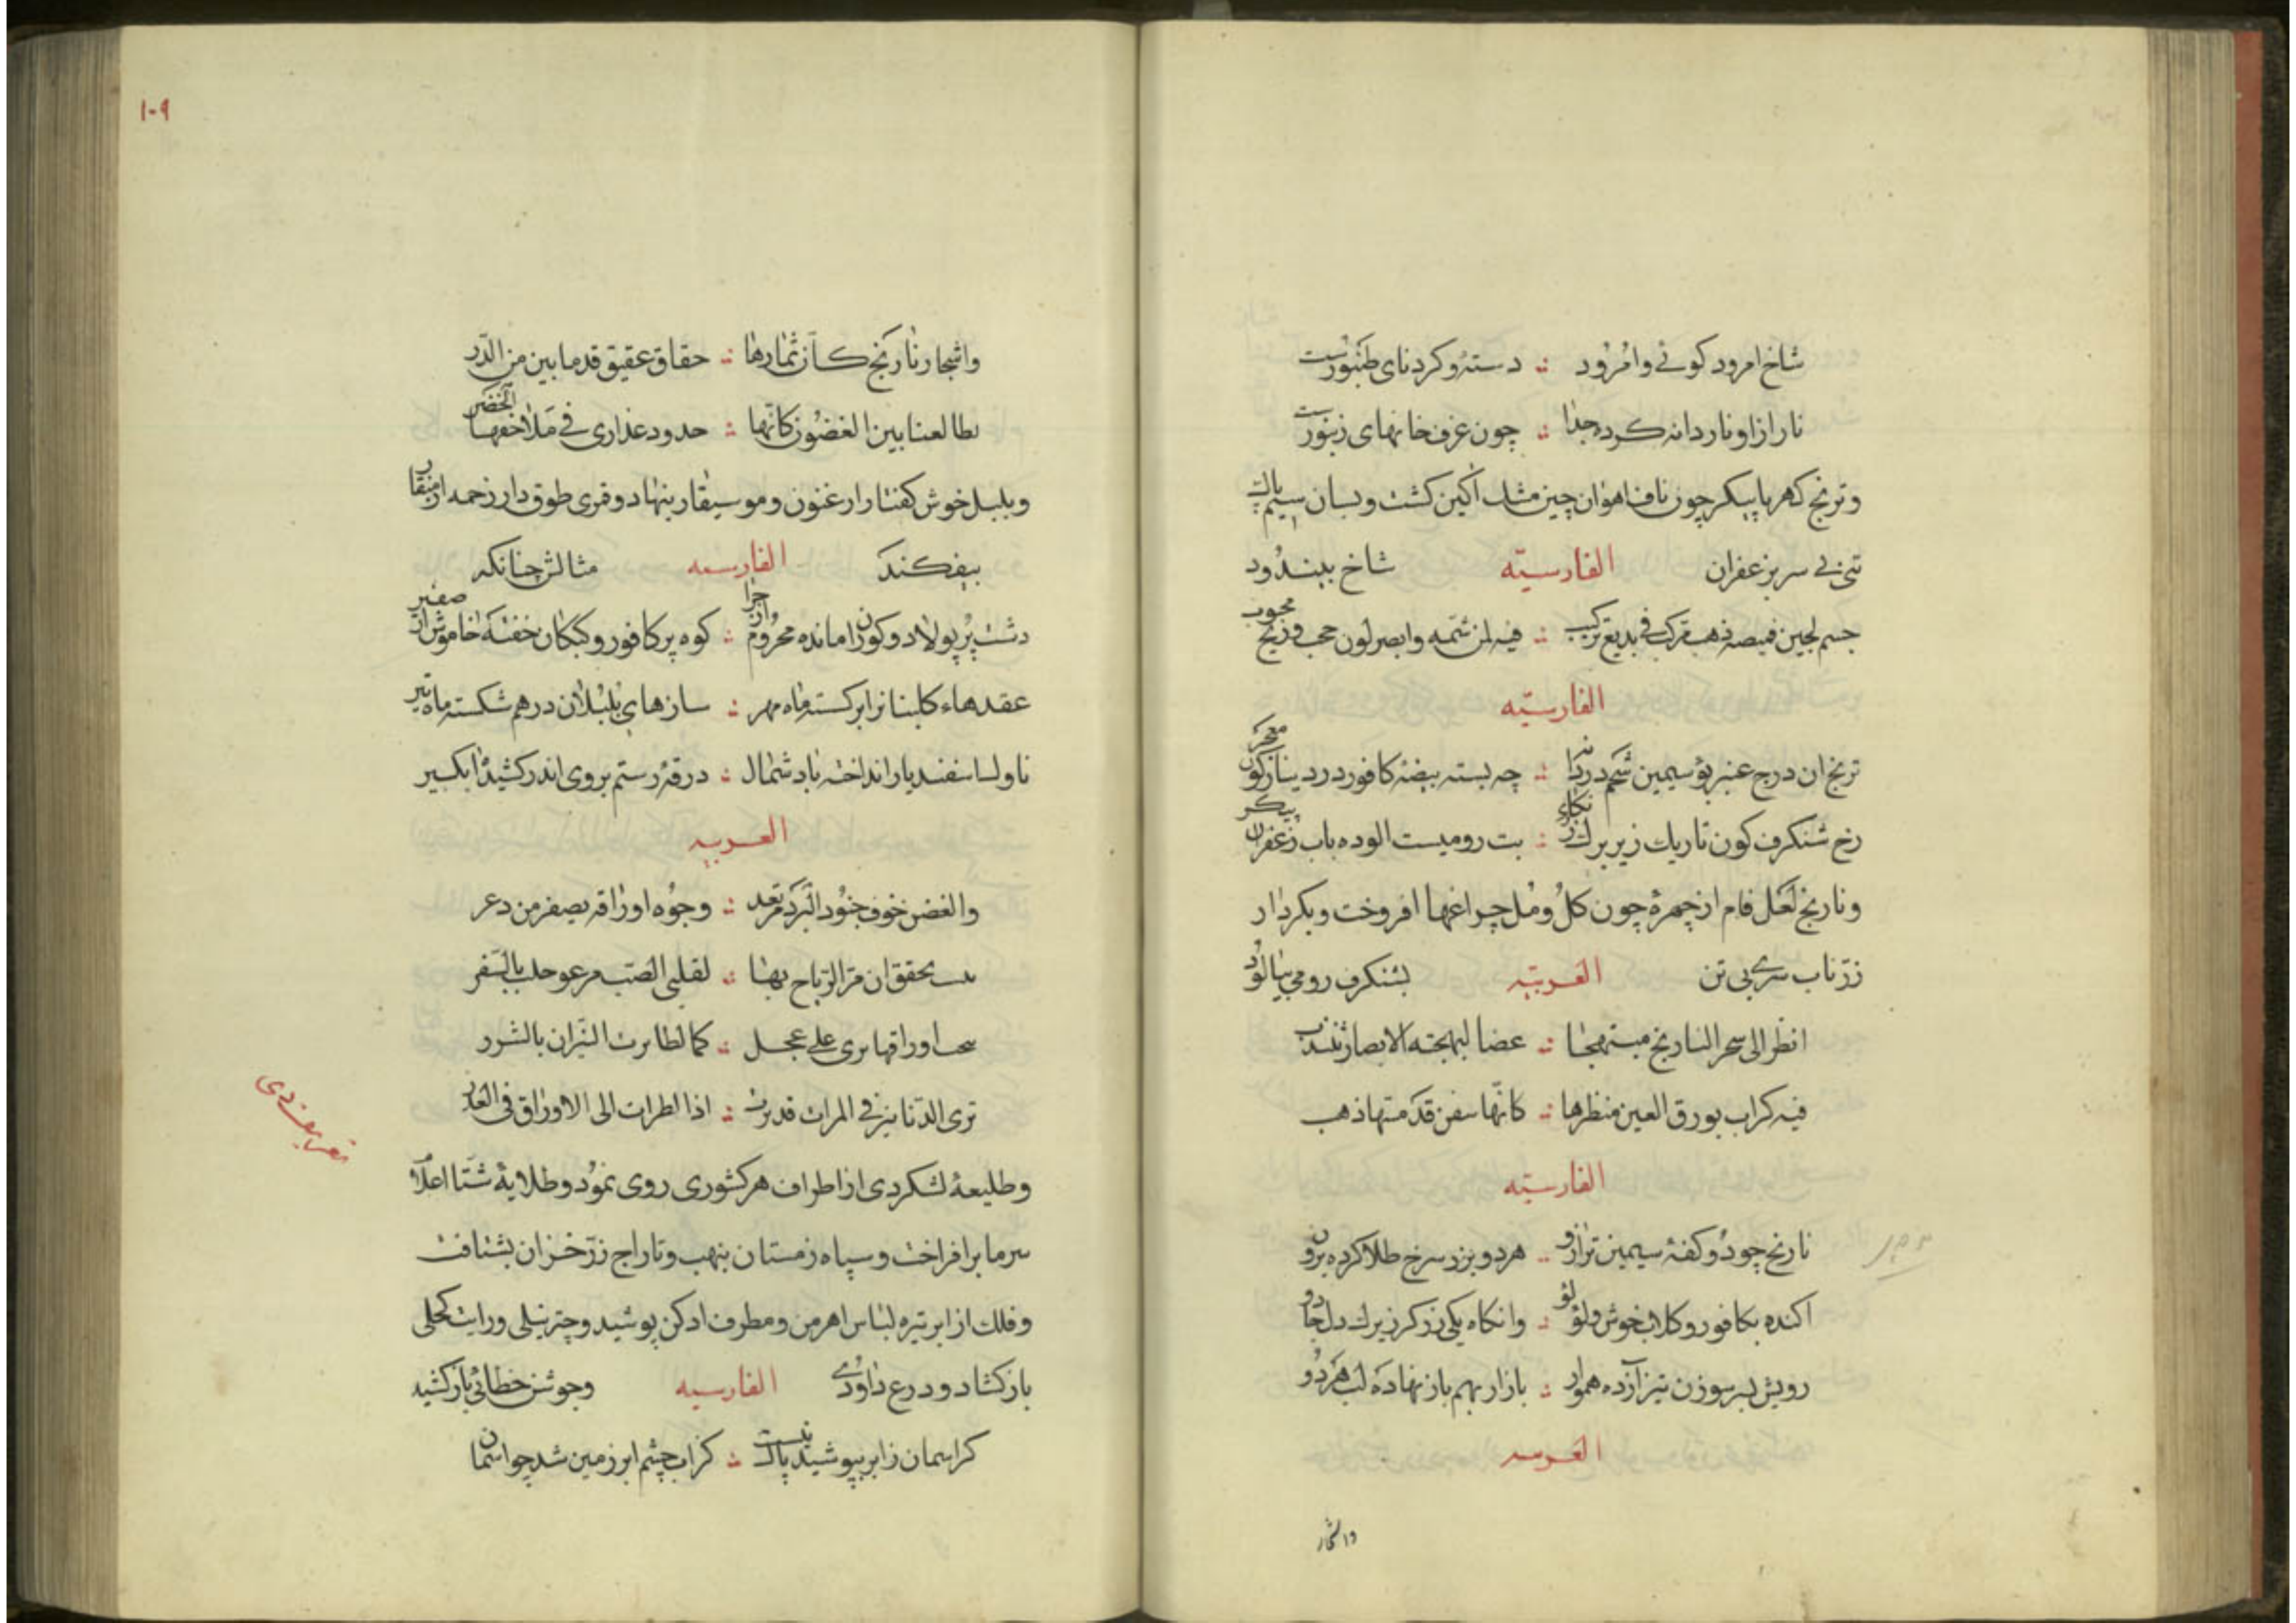 شاخ امرود کوئے وامرود دسته و کردنای طنبورست
نار ازاو ناردانه کرده جدا چون غرف خانهای زنبورست
وترنج کهربا پیکر چون ناف اهوان چین مشک اکین کشت وبسان سیم پاک
تنی بے سر بزعفران الفارسیّه شاخ بیندود
جسم لجین قمیصه ذهب مرکب فی بدیع ترکیب فیه لمن شمه وابصر لون محب وریح محبوب
الفارسیّه
ترنج ان درج عنبر بو سیمین شحم چه بسته بیضهٔ کافور در دینار کون
رخ شنکرف کون تاریك زیر برك بت رومیست الوده باب زعفران پیکر
ونارنج لعل فام از چهرهٔ چون کل ومل چراغها افروخت وبکردار
زرّ ناب سرے بی تن العربیّه بشنکرف رومی بیالود
انظر الی شجر النارنج مبتهجا غضا لبهجته الابصار تنتدب
فیه کراب بورق العین منظرها کانّها سفن قد متها ذهب
الفارسیّه
نارنج چو دو کفهٔ سیمین ترازو هر دو بزر سرخ طلا کرده برون
اکنده بکافور وکلاب خوش ولؤلؤ وانکاه یکی زرکر زیرك دل جادو
رویش بسر سوزن تیز آزده هموار بازار بهم باز نهاده لب هر دو
العربیه
والثمار
۱۰۹
واشجار نارنج کأن ثمارها حقاق عقیق قد ما بین من الدّر
بین الغصون کانّها خدود عذاری فی ملاحفها الخضر
وبلبل خوش کفتار ارغنون وموسیقار بنهاد وقمری طوق دار زخمه از منقار
بیفکند الفارسیه مثالش چنانکه
دشت پر پولاد وکوران مانده محروم از چرا کوه پر کافور وکبکان خفته خاموش از صفیر
عقدهاء کلبنانرا بر کسته ماه مهر سازهای بلبلان درهم شکسته ماه تیر
ناوك اسفندیار انداخته باد شمال درقهٔ رستم بروی اندر کشیده ابکیر
العربیه
والغصن خوف جنود البرد مرتعد وجوه اوراقه یصفر من ذعر
تحقق ان مرّ الریاح بها لقلبی الصّب بالسّفر
اوراقها تری علی عجل کما تطایرت النّیران بالشرر
تری الدّنانیز فی المرات قد اذا نظرات الی الاوراق فی
وطلیعهٔ لشکر دی از اطراف هر کشوری روی نمود وطلایهٔ شتا اعلام
سرما برافراخت وسپاه زمستان بنهب وتاراج زرّ خزان بشتافت
وفلك از ابر تیره لباس اهرمن ومطرف ادکن پوشید وچتر نیلی ورایت کحلی
باز کشاد ودرع داودے الفارسیه وجوشن خطائی باز کشید
کر اسمان ز ابر بپوشید پاک نیست کز اب چشم ابر زمین شد چو اسمان